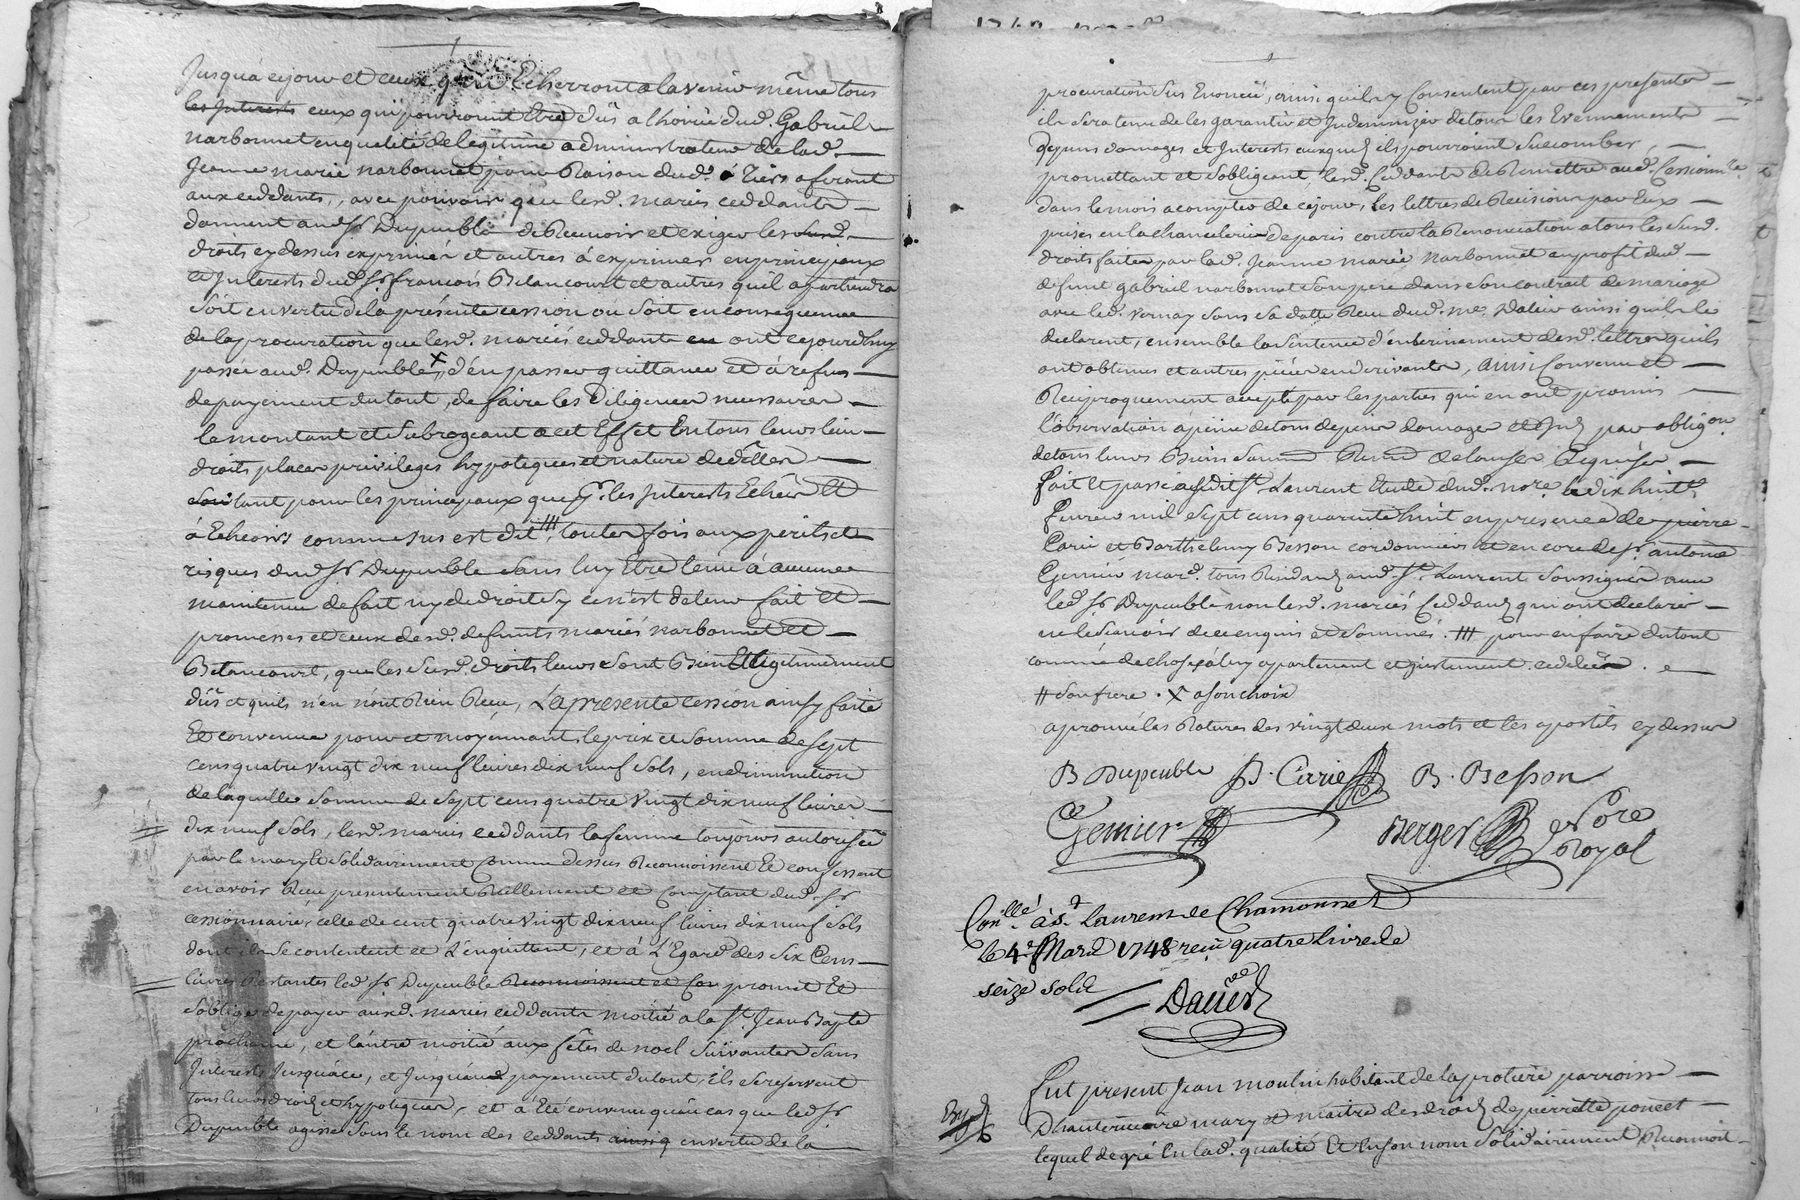 Jusqu'a cejour et ceux qui Echerront a lavenir même tous
les Interests ceux qui pourroient Etre dûs a lhoirie dud. Gabriel
narbonnet enqualité de légitime administrateur de lad.
Jeanne marie narbonnet pour Raison dud. tiers aferant
aux ceddants, avec pouvoir que lesd. mariés ceddants
donnent aud. Sr Dupeuble de Recevoir et exiger les susd.
droits cydessus exprimés et autres à exprimer en principaux
et Interests dud. Sr françois Betancourt et autres qu'il apartiendra
soit en vertu de la présente cession ou soit en consequence
de la procuration que lesd. mariés ceddants en ont cejourdhuy
passée aud. Dupeuble X, d'en passer quittance et à refus
de payement du tout, de faire les Diligences necessaires
le montant et subrogeant a cet Effet En tous leurs
droits places privileges hypoteques et nature de
tant pour les principaux que pr. les Interests Echûs Et
à Echeoirs comme sus est dit /// toutes fois aux perils et
risques dud. Sr Dupeuble sans luy Etre tenu à aucune
maintenue de fait ny de droit sy ce n'est de leur fait Et
promesses et ceux desd. defunts mariés narbonnet et
Betancourt, que les susd. droits leurs sont Bien Et legitimement
dûs et quils n'en n'ont Rien Reçu, La presente cession ainsy faite
Et convenue pour et moyennant le prix et somme de sept
cens quatre vingt dix neuf livres dix neuf sols, en diminution
de laquelle somme de sept cens quatre vingt dix neuf livres
dix neuf sols, lesd. mariés ceddants la femme toujours autorisée
par le mary Et solidairement Comme dessus Reconnoissent Et confessent
en avoir Reçu presentement Réellement et Comptant dud. Sr
cessionnaire, celle de cent quatre vingt dix neuf livres dix neuf sols
dont ils se contentent et L'enquittent, et à L'Egard des six Cens
livres Restantes led. Sr Dupeuble Reconnoissent et Con promet Et
s'oblige de payer ausd. mariés ceddants moitié a la St. Jean Bapte
prochaine, et l'autre moitié aux fêtes de noel suivantes sans
Interests Jusquàce, et Jusquàud payement du tout, ils se reservent
tous leurs droits et hypoteques, et a été convenu qu'au cas que led. Sr
Dupeuble agisse sous le nom des ceddants ainsiq en vertu de la
procuration sus Enoncée, ainsi quils y Consentent par ces presentes
il sera tenu de les garantir et Indemnizer de tous les Evennements
depens domages et Interests auxquels ils pourroient Succomber,
promettant et s'obligeant, lesd. Ceddants de Remettre aud. Cessionre.
dans le mois a compter de cejour, Les lettres de Récision par Eux
prises en la chancelerie de paris contre la Renonciation a tous les susd.
droits faite par lad. Jeanne marie narbonnet au profit dud.
defunt gabriel narbonnet son pere dans son contrat de mariage
avec led. vernay sous sa datte Reçu dud. me. Dalin ainsi qu'ils le
declarent, ensemble la Sentence d'enterinement desd. lettres quils
ont obtenus et autres pièces en derivantes, Ainsi Convenu et
Réciproquement accepté par les parties qui en ont promis
l'observation a peine de tous depens domages et Ints par obligon.
de tous leurs Biens
fait et passé audit St. Laurent Etude dud. nore. Le dix huite.
fevrier mil sept cens quarente huit en presence de pierre
Carie et Barthelemy Besson cordonniers et encore de sr. antoine
Genier mard. tous Residants aud. St. Laurent soussignés avec
led. Sr Dupeuble non lesd. mariés Ceddants qui ont declaré
ne le sçavoir de ce enquis et sommés. /// pour en faire du tout
comme de chose à luy apartenant et justement cedées.
// son frere. X a son choix
aprouvé les Ratures des vingt deux mots et les apostils cydessus
B Dupeuble P. Carie B. Besson
Genier Berger Nore
Royal
Conllé. à St. Laurent de Chamousset
le 4e Mars 1748 reçu quatre livres
seize sols
Daver
Fut present Jean moulin habitant de la protiere parroisse
Dhauterivoire mary et maitre des droits de pierrette poncet
lequel de gré En lad. qualité Et En son nom solidairement Reconnoit